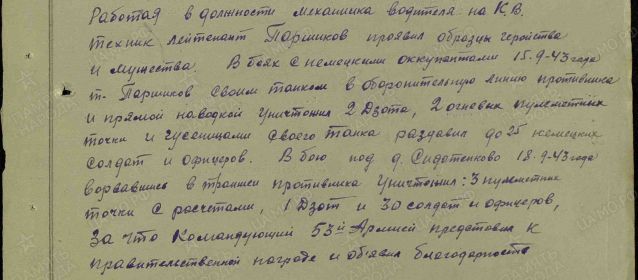 Работая в должности механика водителя на К.В.
техник лейтенант Паршиков проявил образцы геройства
и мужества. В боях с немецкими оккупантами 15.9-43 года
т. Паршиков своим танком в оборонительную линию противника
и прямой наводкой уничтожил 2 Дзота, 2 огневых пулеметных
точки и гусеницами своего танка раздавил до 25 немецких
солдат и офицеров. В бою под д. Сидотенково 18.9-43 года
ворвавшись в траншеи противника уничтожил: 3 пулеметных
точки с расчетами, 1 Дзот и 30 солдат и офицеров,
За что Командующий 53й Армией представил к
правительственной награде и объявил благодарность